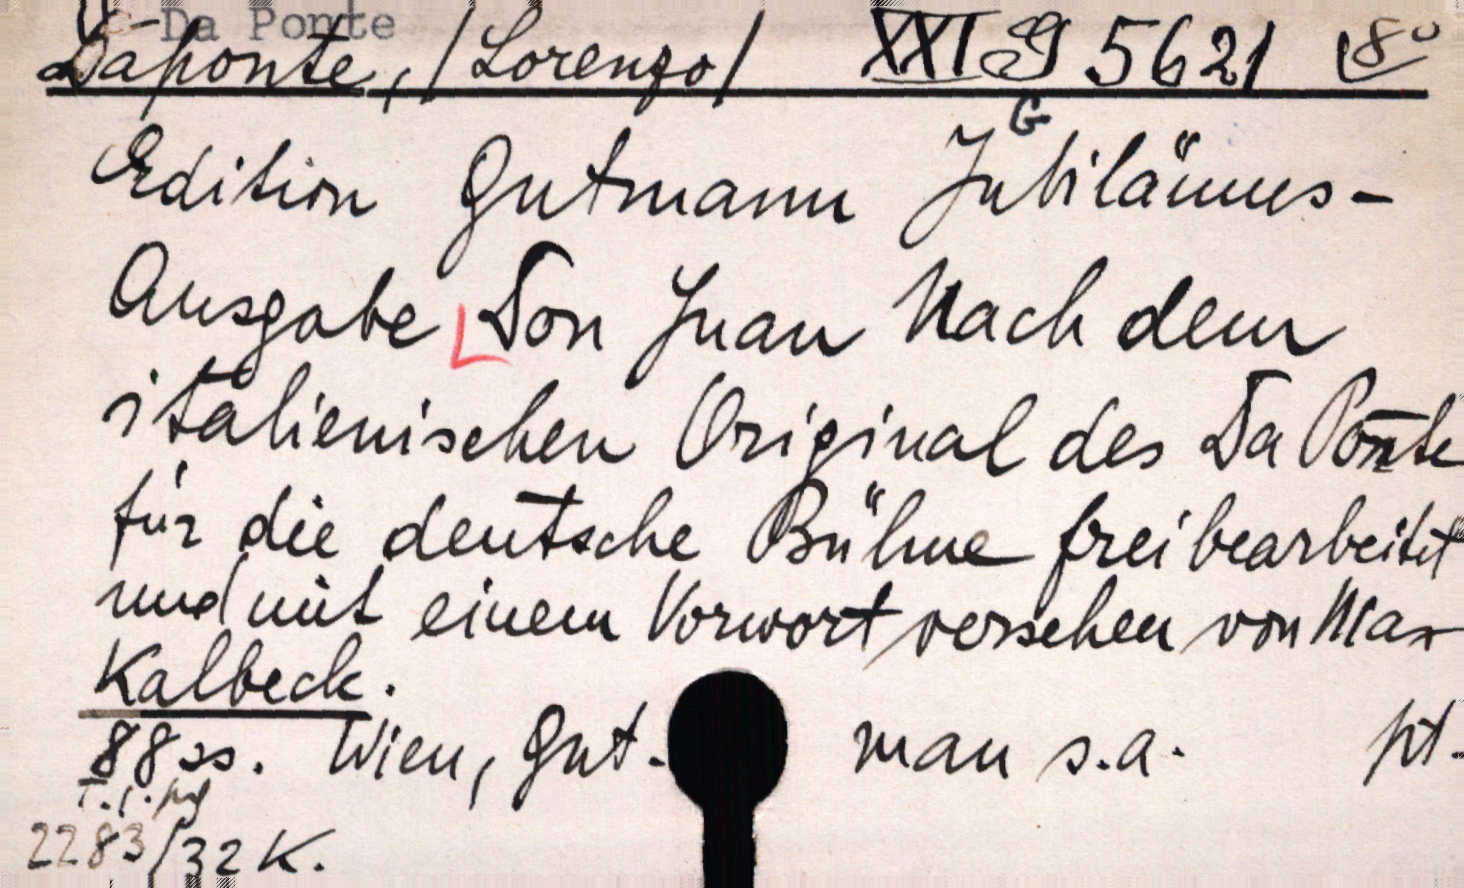 Da Ponte
Daponte, /Lorenzo/ XXI G 5621 8°
G
Edition Gutmann Jubiläums-
Ausgabe Don Juan Nach dem
italienischen Original des Da Ponte
für die deutsche Bühne frei bearbeitet
und mit einem Vorwort versehen von Max
Kalbeck.
88 ss. Wien, Gut. man s.a. pt.
2283/32 K.